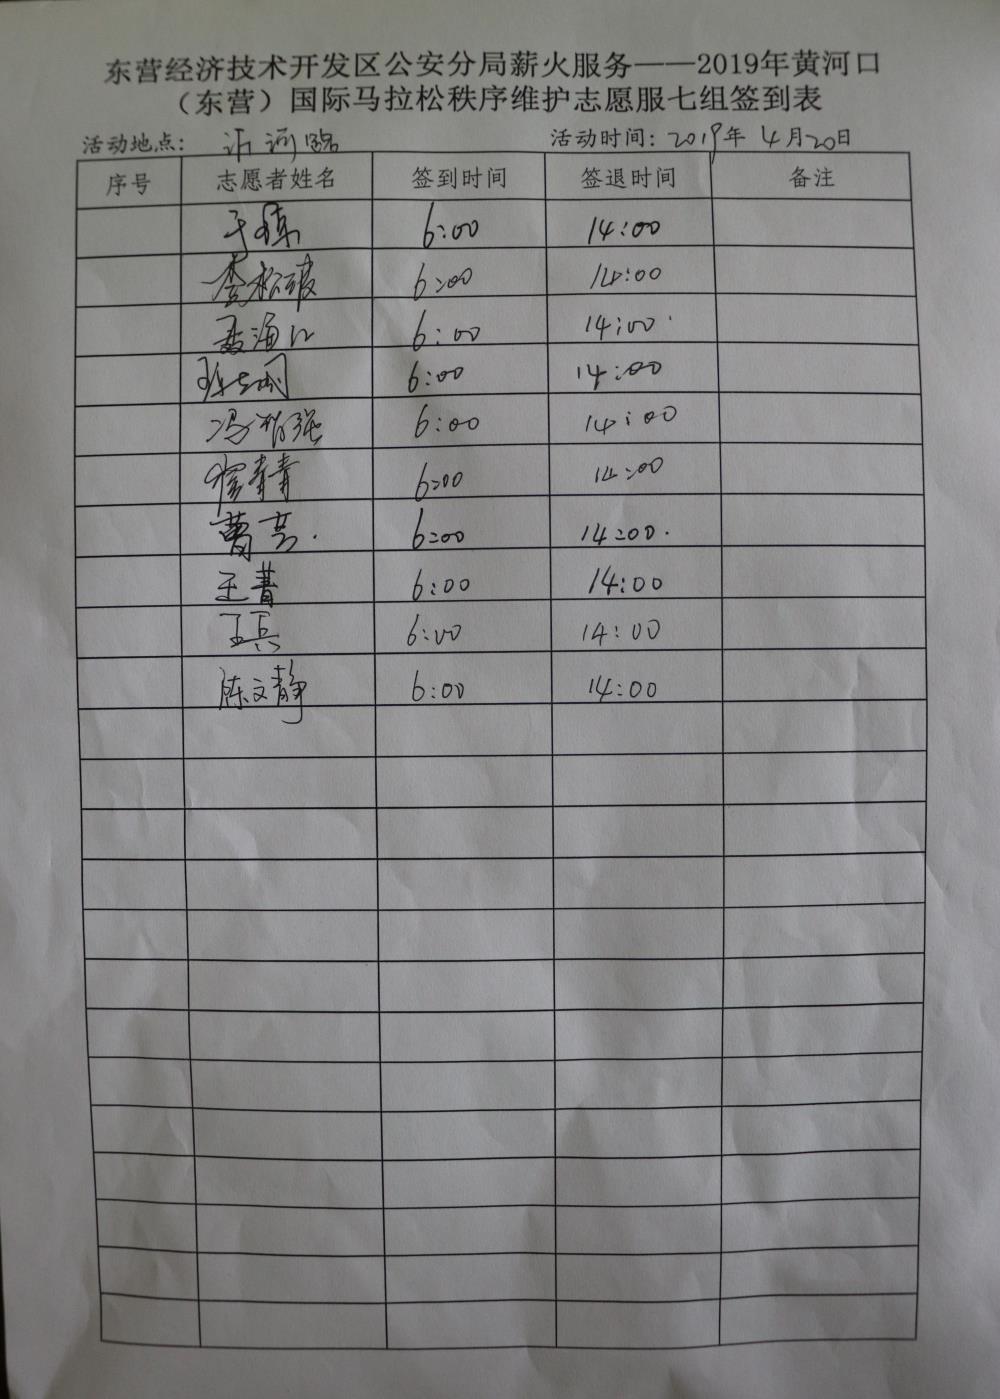 东营经济技术开发区公安分局薪火服务——2019年黄河口
（东营）国际马拉松秩序维护志愿服七组签到表
活动地点: 沂河路 活动时间: 2019年 4月20日
序号 志愿者姓名 签到时间 签退时间 备注
6:00 14:00
6:00 14:00
6:00 14:00
6:00 14:00
冯 强 6:00 14:00
青青 6:00 14:00
曹芸 6:00 14:00
王菁 6:00 14:00
王兵 6:00 14:00
陈文静 6:00 14:00